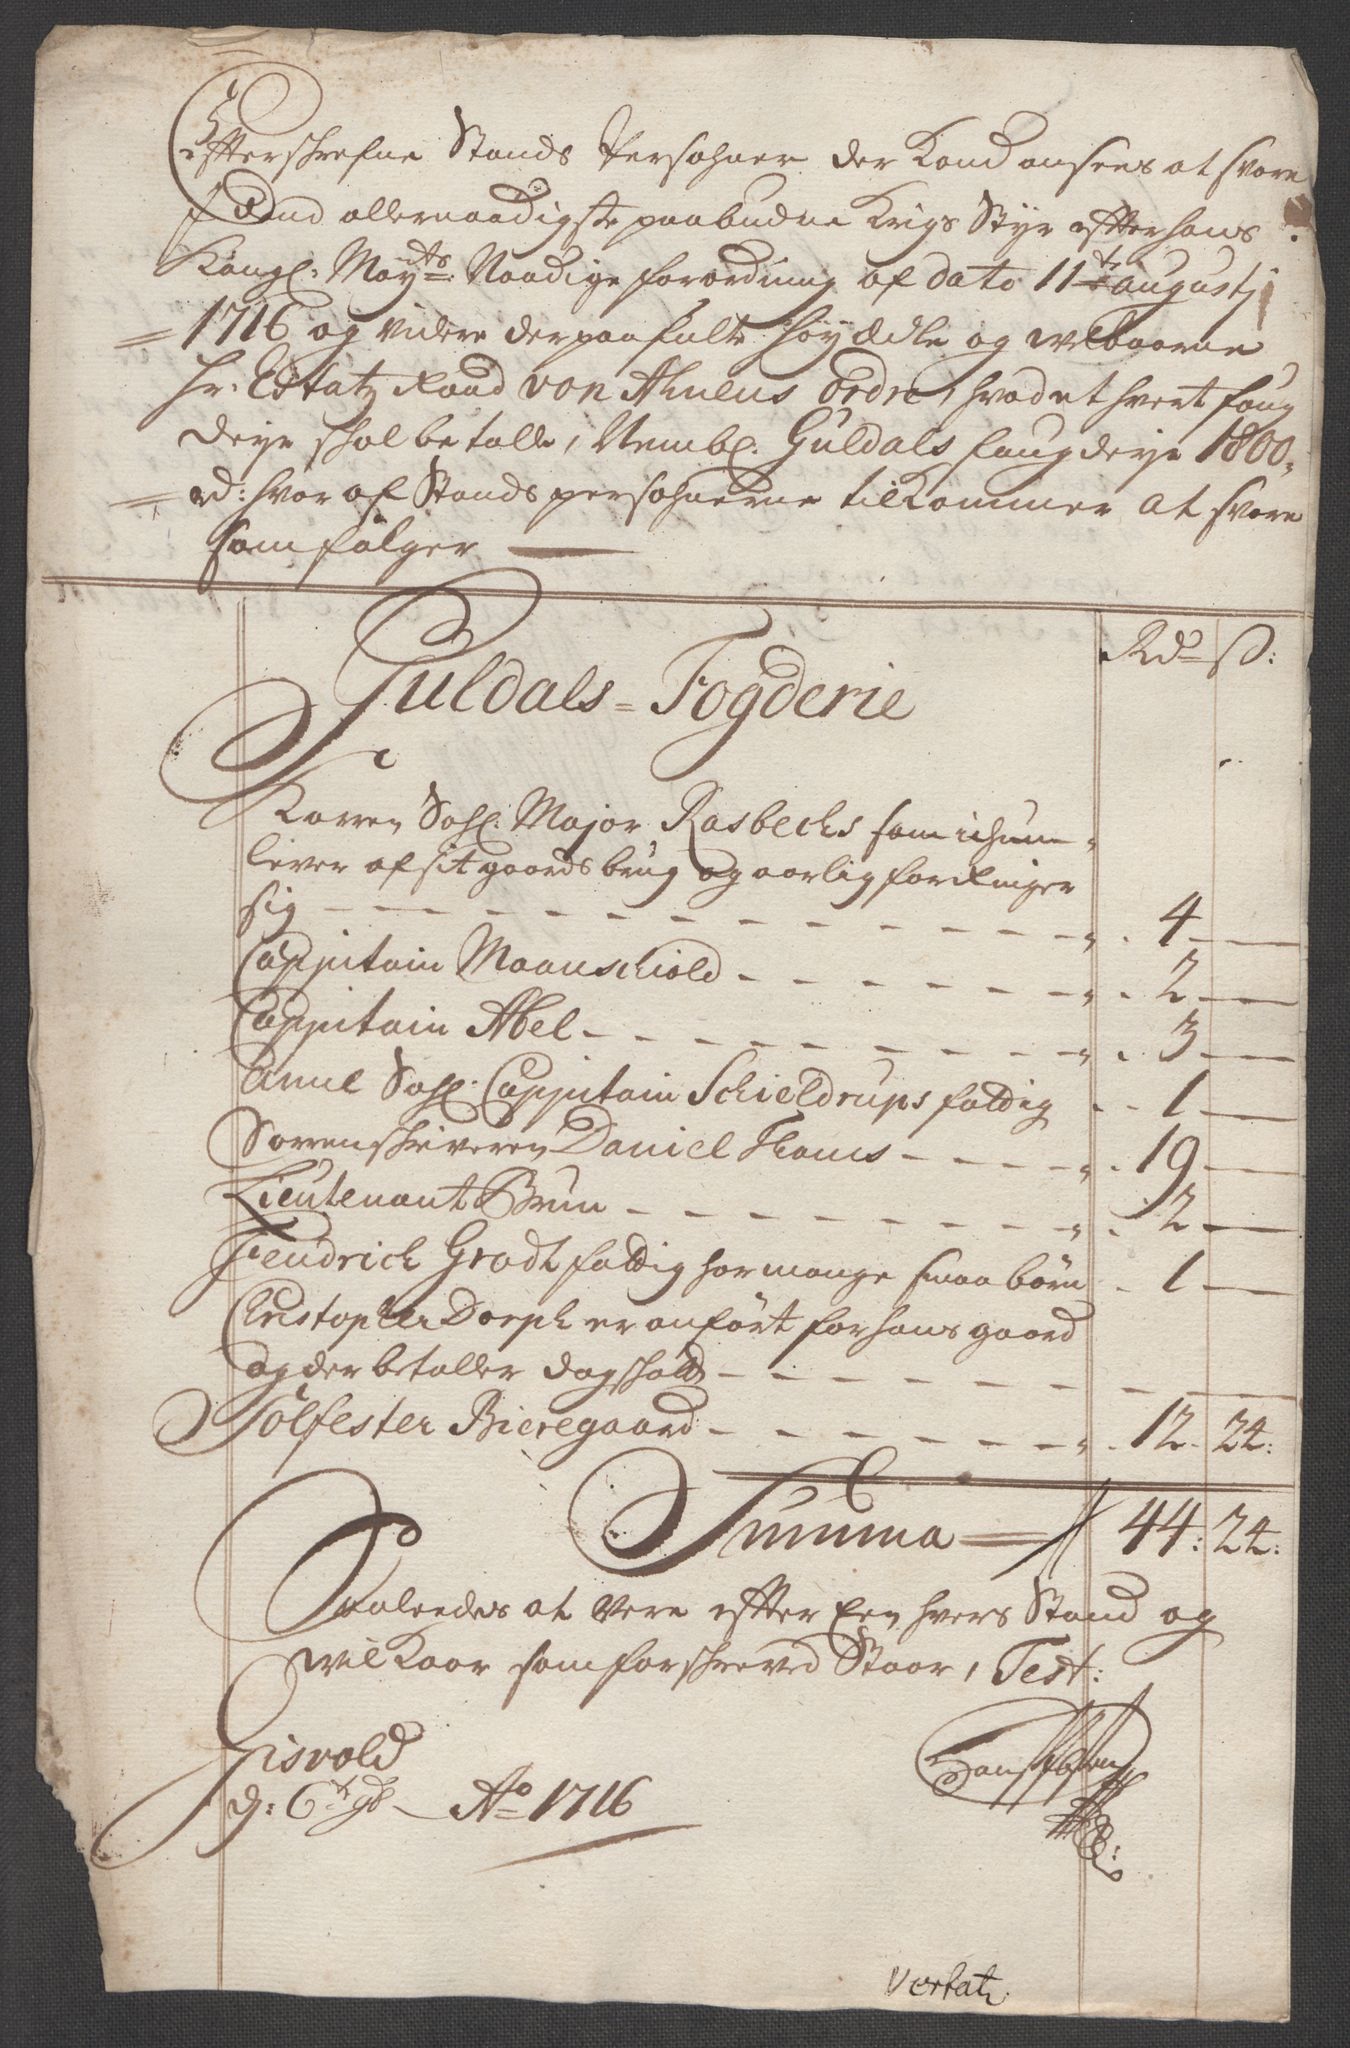 Effterschrefne Stands Persohner der Kand ansees at svare
dend allernaadigste paabudne Krigs Styr effter hans
Kongl: Mayts: Naadige forordning af dato 11te augustj
1716 og videre derpaa fulte höyædle og welbaarne
Hr. Ettatz Raad von Ahnens ordre, hvad et hvert foug
derje schal betalle, Nembl. Guldals fougderje 1800
rd: hvor af Stands persohnerne tilkommer at svare
som fölger
Rdr ß:
Guldals = Fogderie
Karen Sahl. Major Rasbechs som
lever af sit gaards brug og aarlig forringer
sig 4
Cappitain Maanschiold 2
Cappitain Abel 3
Anne Sahl. Cappitain Schieldrups fattig 1
Sorrenschriveren Daniel Thams 19
Lieutenant Brun 2
Fendrich Grodt fattig har mange smaa börn 1
Christopher Dorph er anfört for hans gaard
og der betaller dagschatt
Sölfester Bieregaard 12 24:
Summa 44: 24:
Saaleedes at Vere effter Een hvers Stand og
wilkaar som forschrevd Staar, Test:
Gisvold
d: 6t 9b Ao 1716
Vertatz